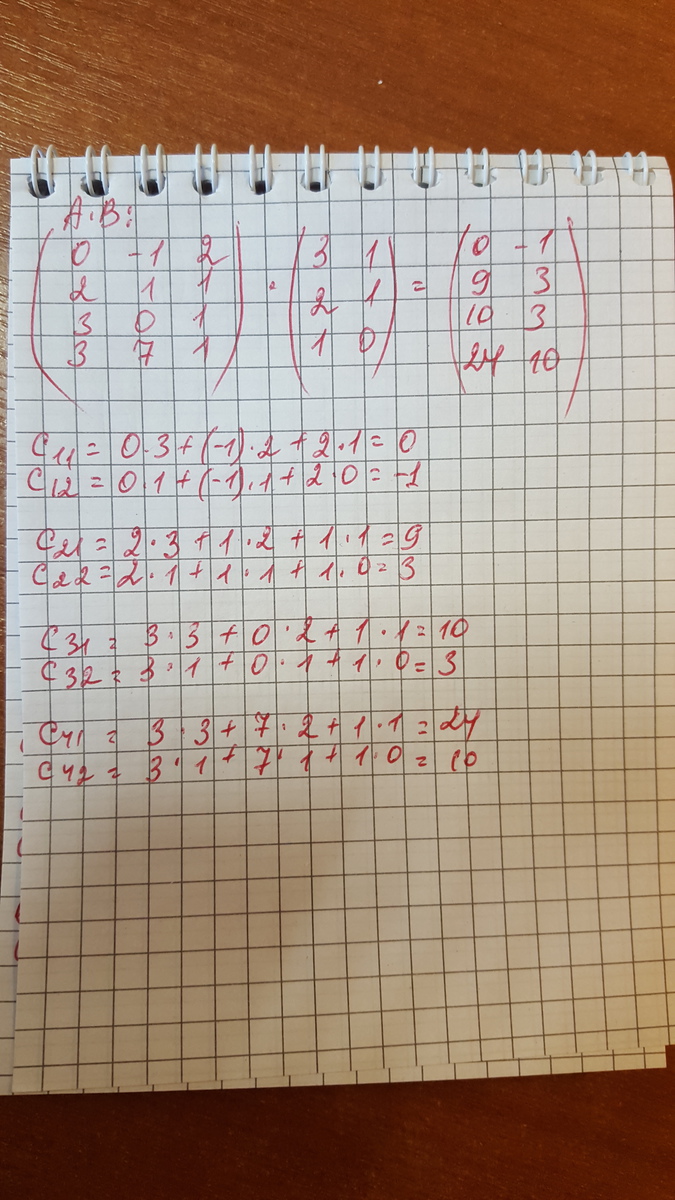 A·B:
0 -1 2 3 1 0 -1
2 1 1 · 2 1 = 9 3
3 0 1 1 0 10 3
3 7 1 24 10
C11 = 0·3+(-1)·2+2·1=0
C12 = 0·1+(-1)·1+2·0=-1
C21 = 2·3+1·2+1·1=9
C22=2·1+1·1+1·0=3
C31 = 3·3+0·2+1·1=10
C32 = 3·1+0·1+1·0=3
C41 = 3·3+7·2+1·1=24
C42 = 3·1+7·1+1·0=10